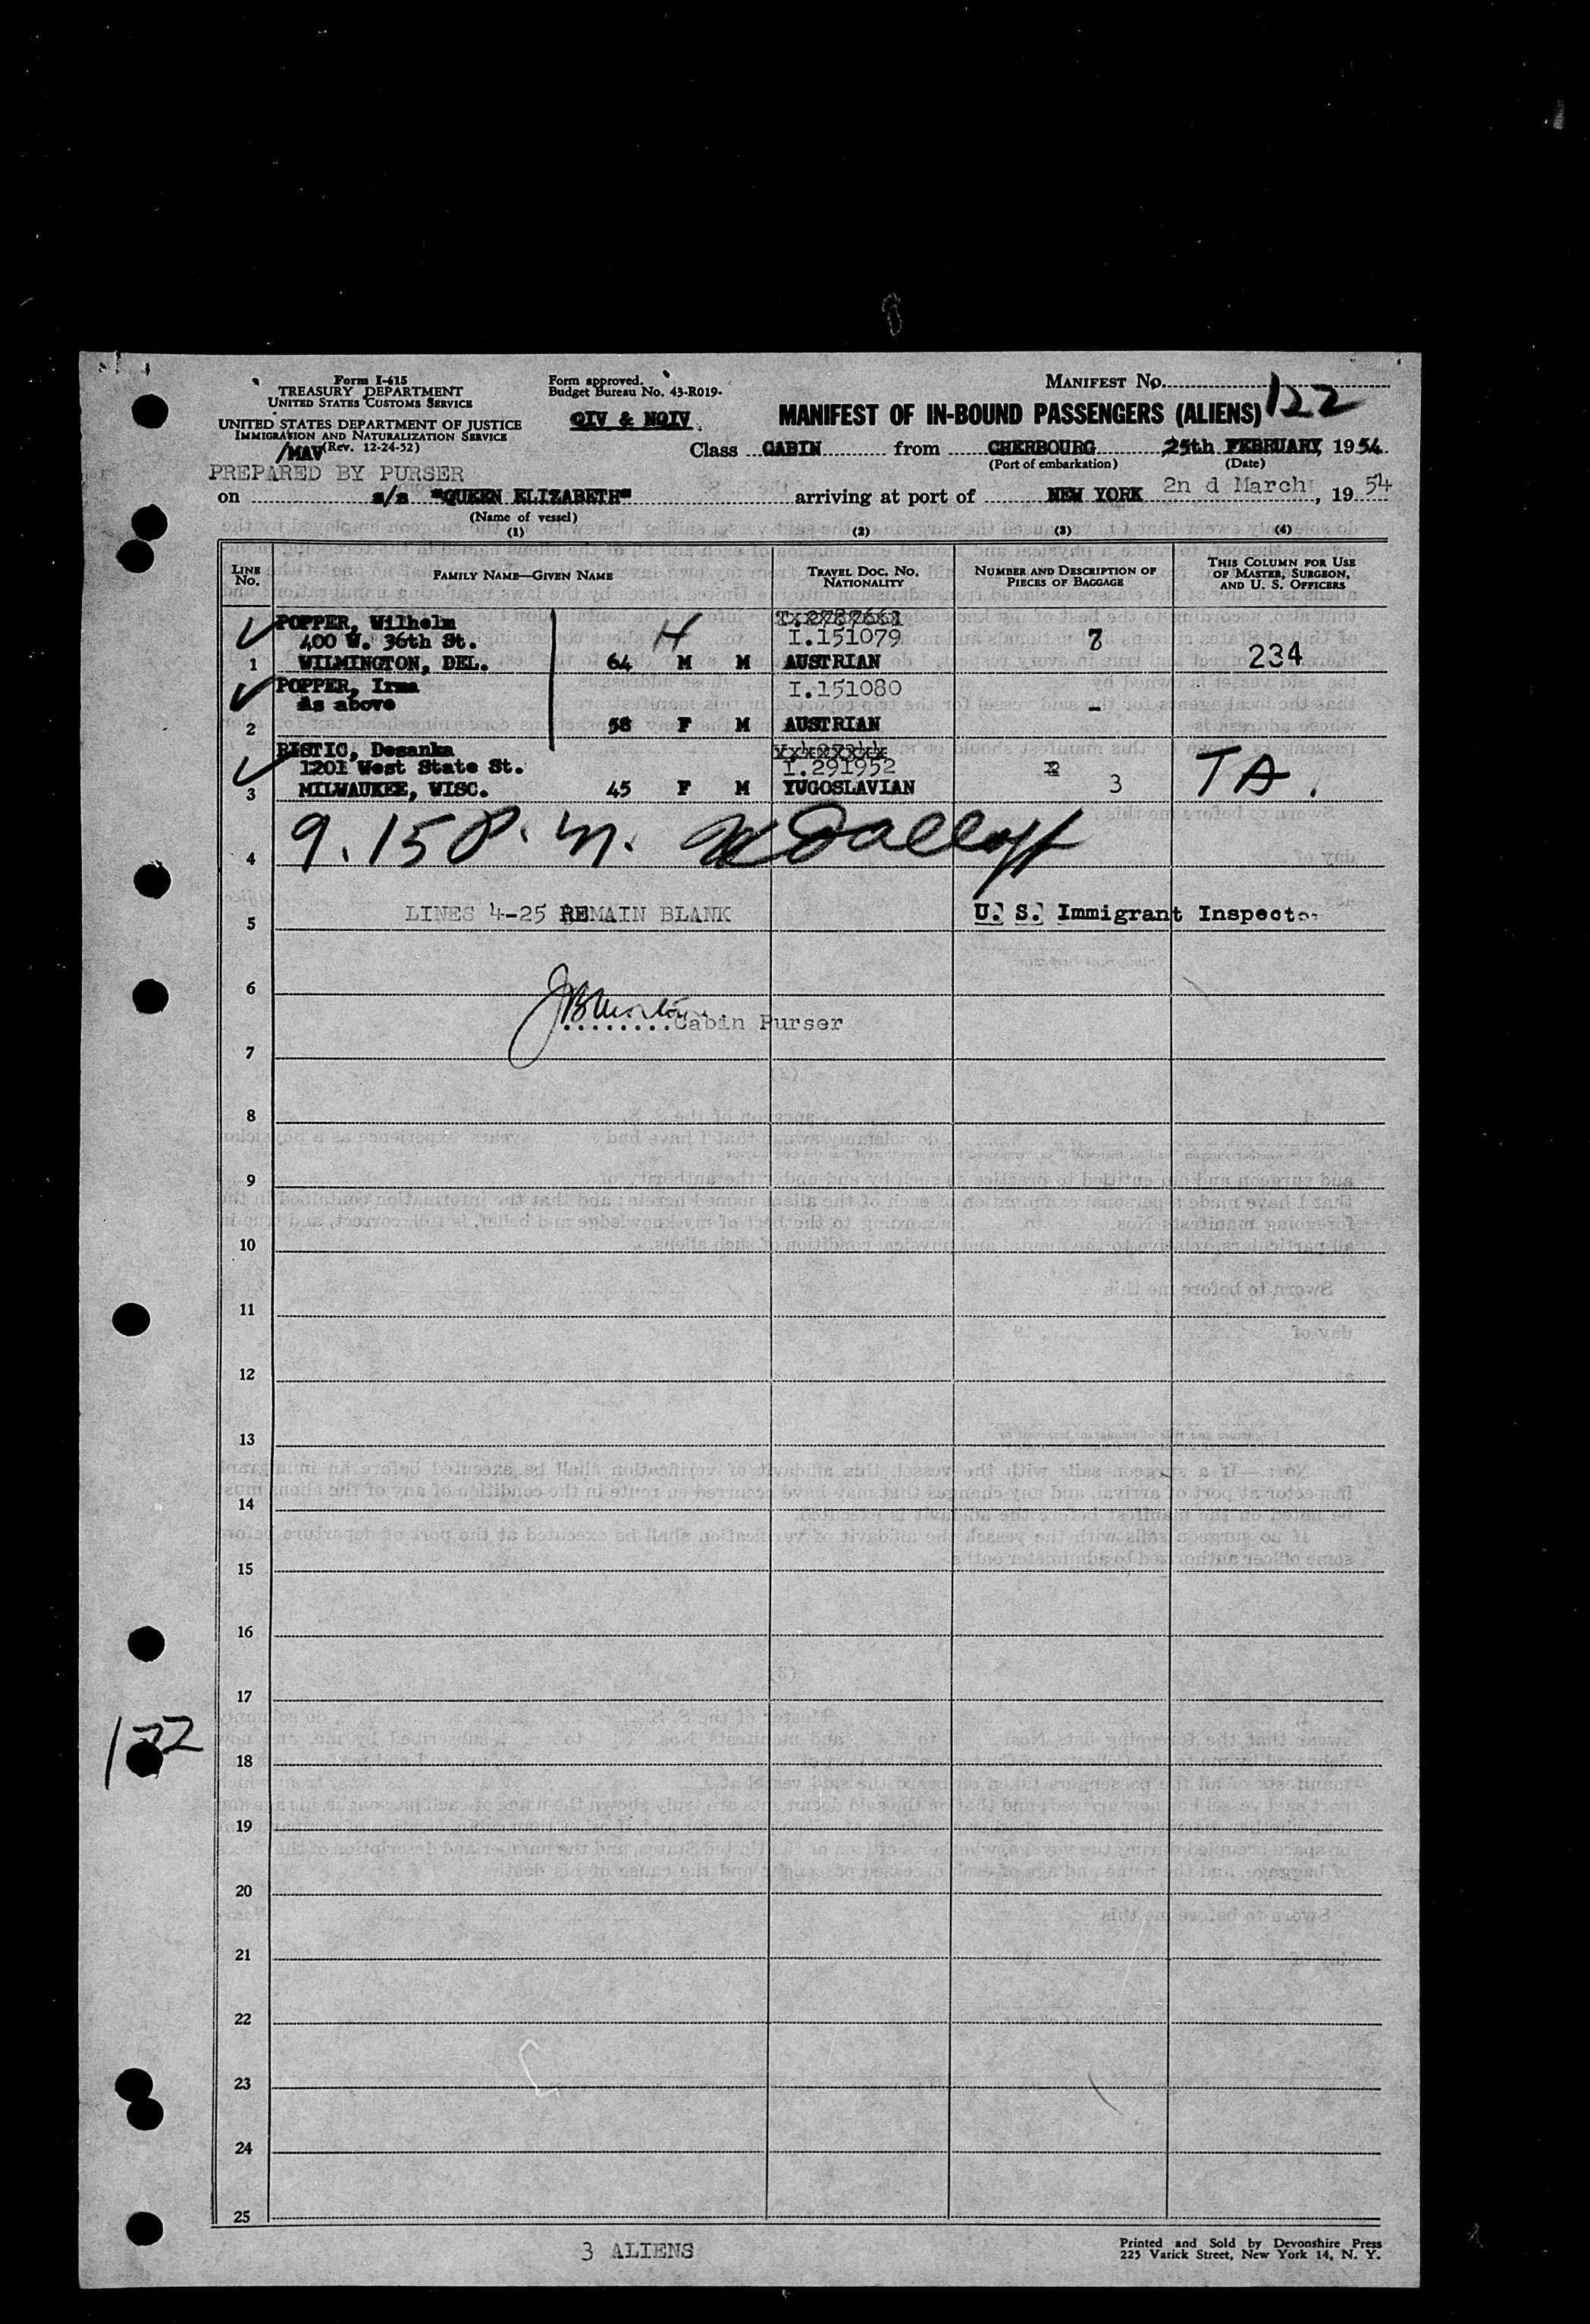 Form I-415
TREASURY DEPARTMENT
UNITED STATES CUSTOMS SERVICE
UNITED STATES DEPARTMENT OF JUSTICE
IMMIGRATION AND NATURALIZATION SERVICE
/MAV (Rev. 12-24-52)
PREPARED BY PURSER
Form approved.
Budget Bureau No. 43-R019-
QIV & NQIV.
MANIFEST No. 122
MANIFEST OF IN-BOUND PASSENGERS (ALIENS)
Class CABIN from CHERBOURG 25th FEBRUARY, 1954.
(Port of embarkation) (Date)
on s/s "QUEEN ELIZABETH" arriving at port of NEW YORK 2n d March, 1954
(Name of vessel)
(1) (2) (3) (4)
LINE No. FAMILY NAME—GIVEN NAME TRAVEL DOC. NO. NATIONALITY NUMBER AND DESCRIPTION OF PIECES OF BAGGAGE THIS COLUMN FOR USE OF MASTER, SURGEON, AND U. S. OFFICERS
POPPER, Wilhelm
400 W. 36th St. H I.151079 7
1 WILMINGTON, DEL. 64 M M AUSTRIAN 234
POPPER, Irma I.151080
As above -
2 58 F M AUSTRIAN
RISTIC, Desanka
1201 West State St. I.291952 2
3 MILWAUKEE, WISC. 45 F M YUGOSLAVIAN 3 TA.
4 9.15 P.m.
5 LINES 4-25 REMAIN BLANK U. S. Immigrant Inspector
6
Cabin Purser
7
8
9
10
11
12
13
14
15
16
17
122
18
19
20
21
22
23
24
25
3 ALIENS
Printed and Sold by Devonshire Press
225 Varick Street, New York 14, N. Y.